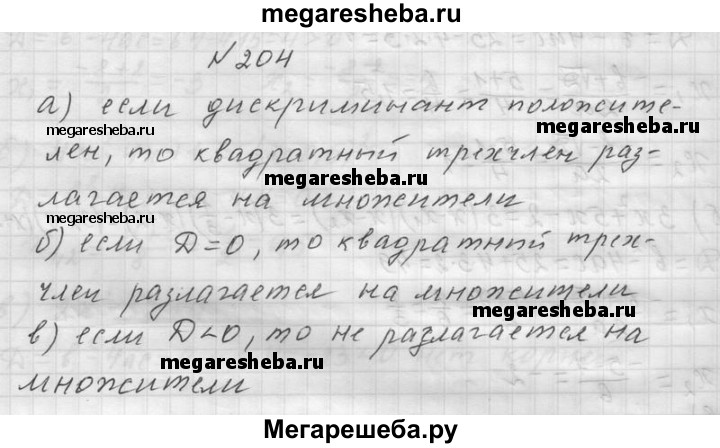 megaresheba.ru
№204
а) если дискриминант положите-
megaresheba.ru megaresheba.ru
лен, то квадратный трехчлен раз-
megaresheba.ru
лагается на множители
megaresheba.ru
б) если D=0, то квадратный трех-
член разлагается на множители
в) если D<0, то не разлагается на
megaresheba.ru megaresheba.ru
множители
Мегарешеба.ру